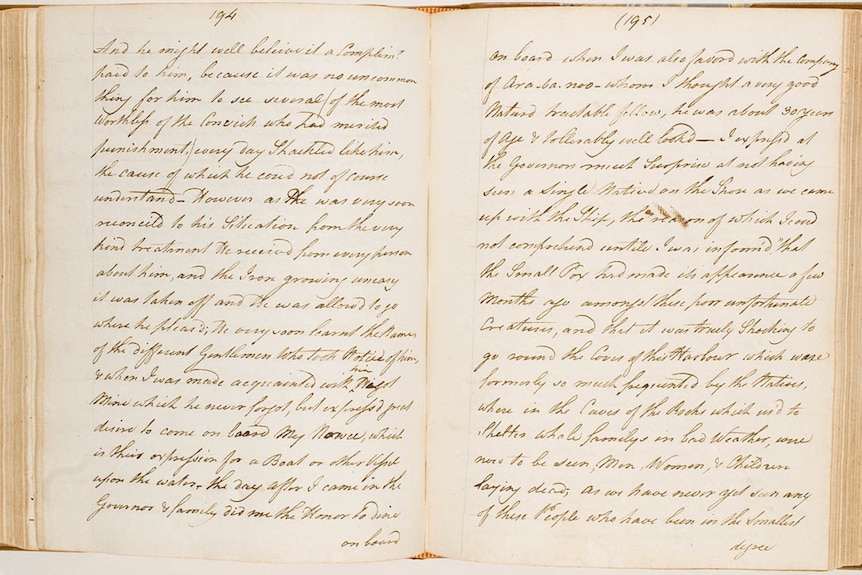 194
And he might well believe it a Complimt.
paid to him, because it was no uncommon
thing for him to see several (of the most
Worthless of the Convicts who had merited
punishment) every day Shackled like him,
the cause of which he could not of course
understand – However as He was very soon
reconciled to his Situation from the very
kind treatment He received from every person
about him, and the Iron growing uneasy
it was taken off and He was allowed to go
where he pleas'd; He very soon learnt the Names
of the different Gentlemen Who took Notice of him,
& when I was made acquainted with him He got
Mine which he never forgot, but express'd great
desire to come on board My Nowee; which
is their expression for a Boat or other Vessel
upon the water. the day after I came in the
Governor & family did me the Honor to dine
on board
(195)
on board when I was also favord with the Company
of Ara-ba-noo – whom I thought a very good
Natured tractable fellow, he was about 30 Years
of Age & tollerably well look'd – I express'd at
the Governors much Surprise at not having
seen a Single Native on the Shore as we came
up with the Ship, the reason of which I coud
not comprehend untile I was inform'd that
the Small Pox had made its appearance a few
Months ago amongst these poor unfortunate
Creatures, and that it was truely Shocking to
go round the Coves of this Harbour which were
formerly so much frequented by the Natives,
where in the Caves of the Rocks which us'd to
Shelter whole familys in bad Weather, were
now to be seen, Men, Women, & Children
laying dead; As we have never yet seen any
of these People who have been in the Smallest
degree